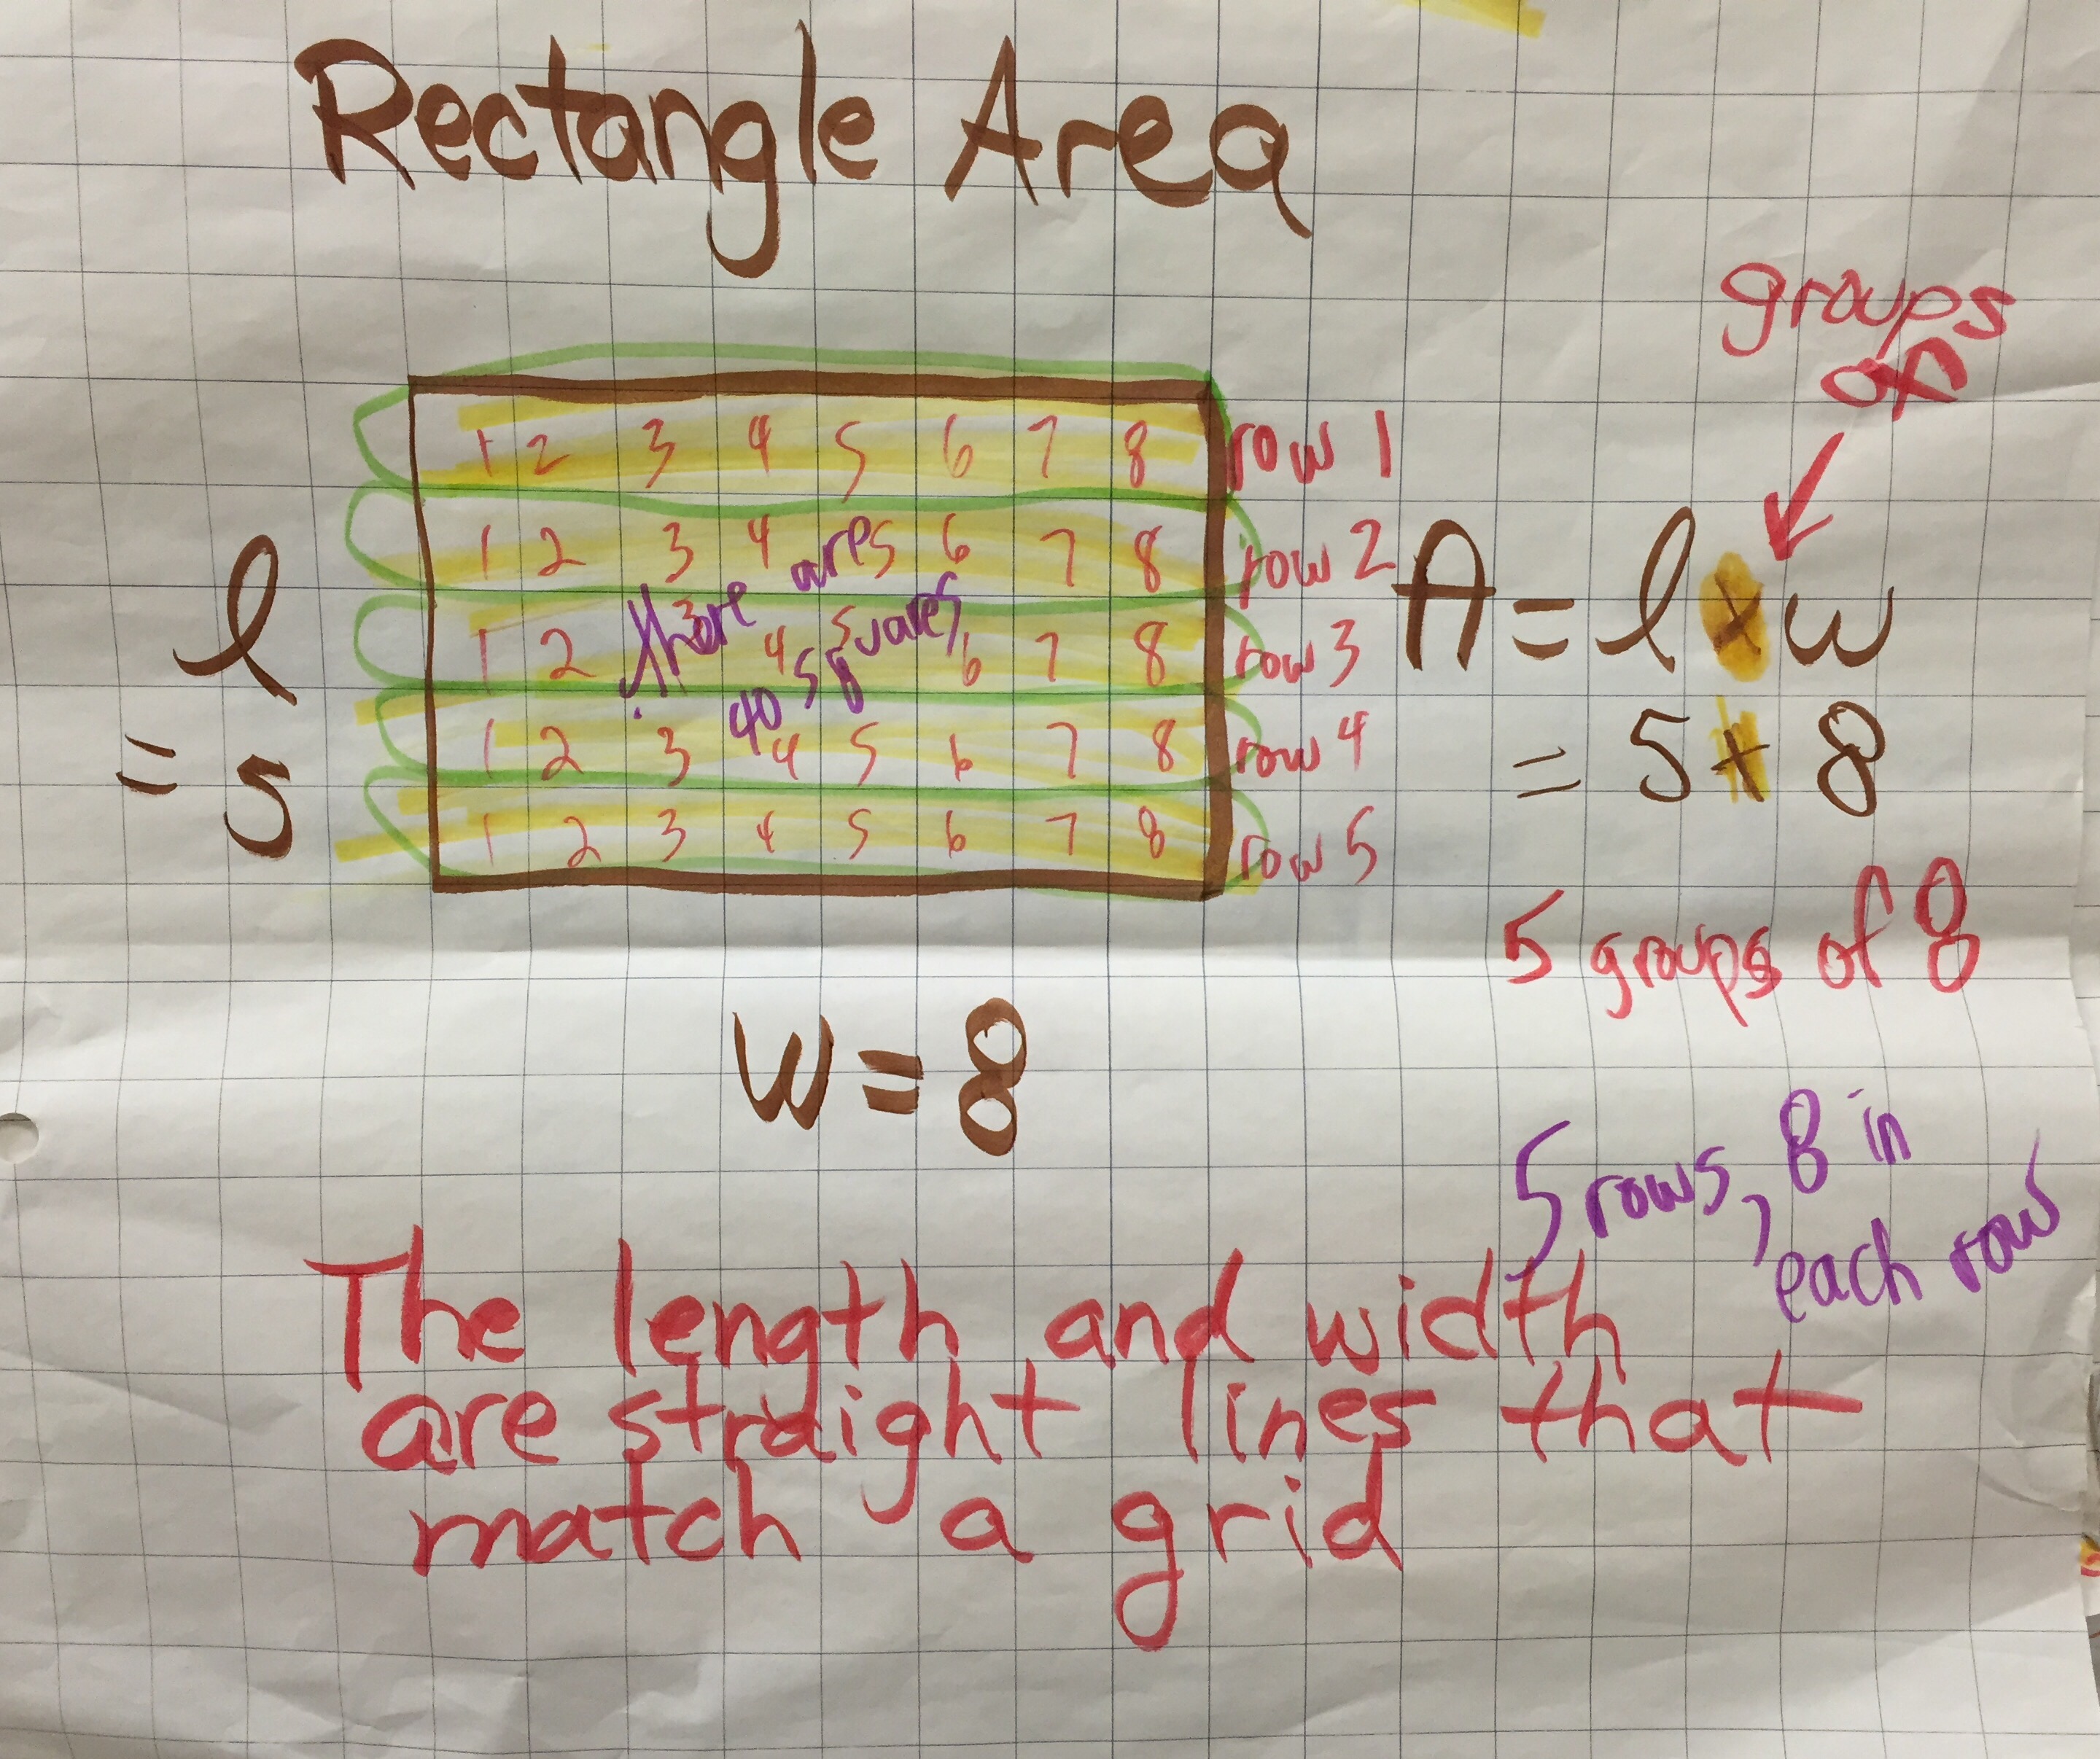 Rectangle Area
groups
of
1 2 3 4 5 6 7 8 row 1
1 2 3 4 5 6 7 8 row 2
1 2 3 4 5 6 7 8 row 3
1 2 3 4 5 6 7 8 row 4
1 2 3 4 5 6 7 8 row 5
there are
40 squares
l
= 5
A = l x w
= 5 x 8
5 groups of 8
w = 8
5 rows, 8 in
each row
The length and width
are straight lines that
match a grid